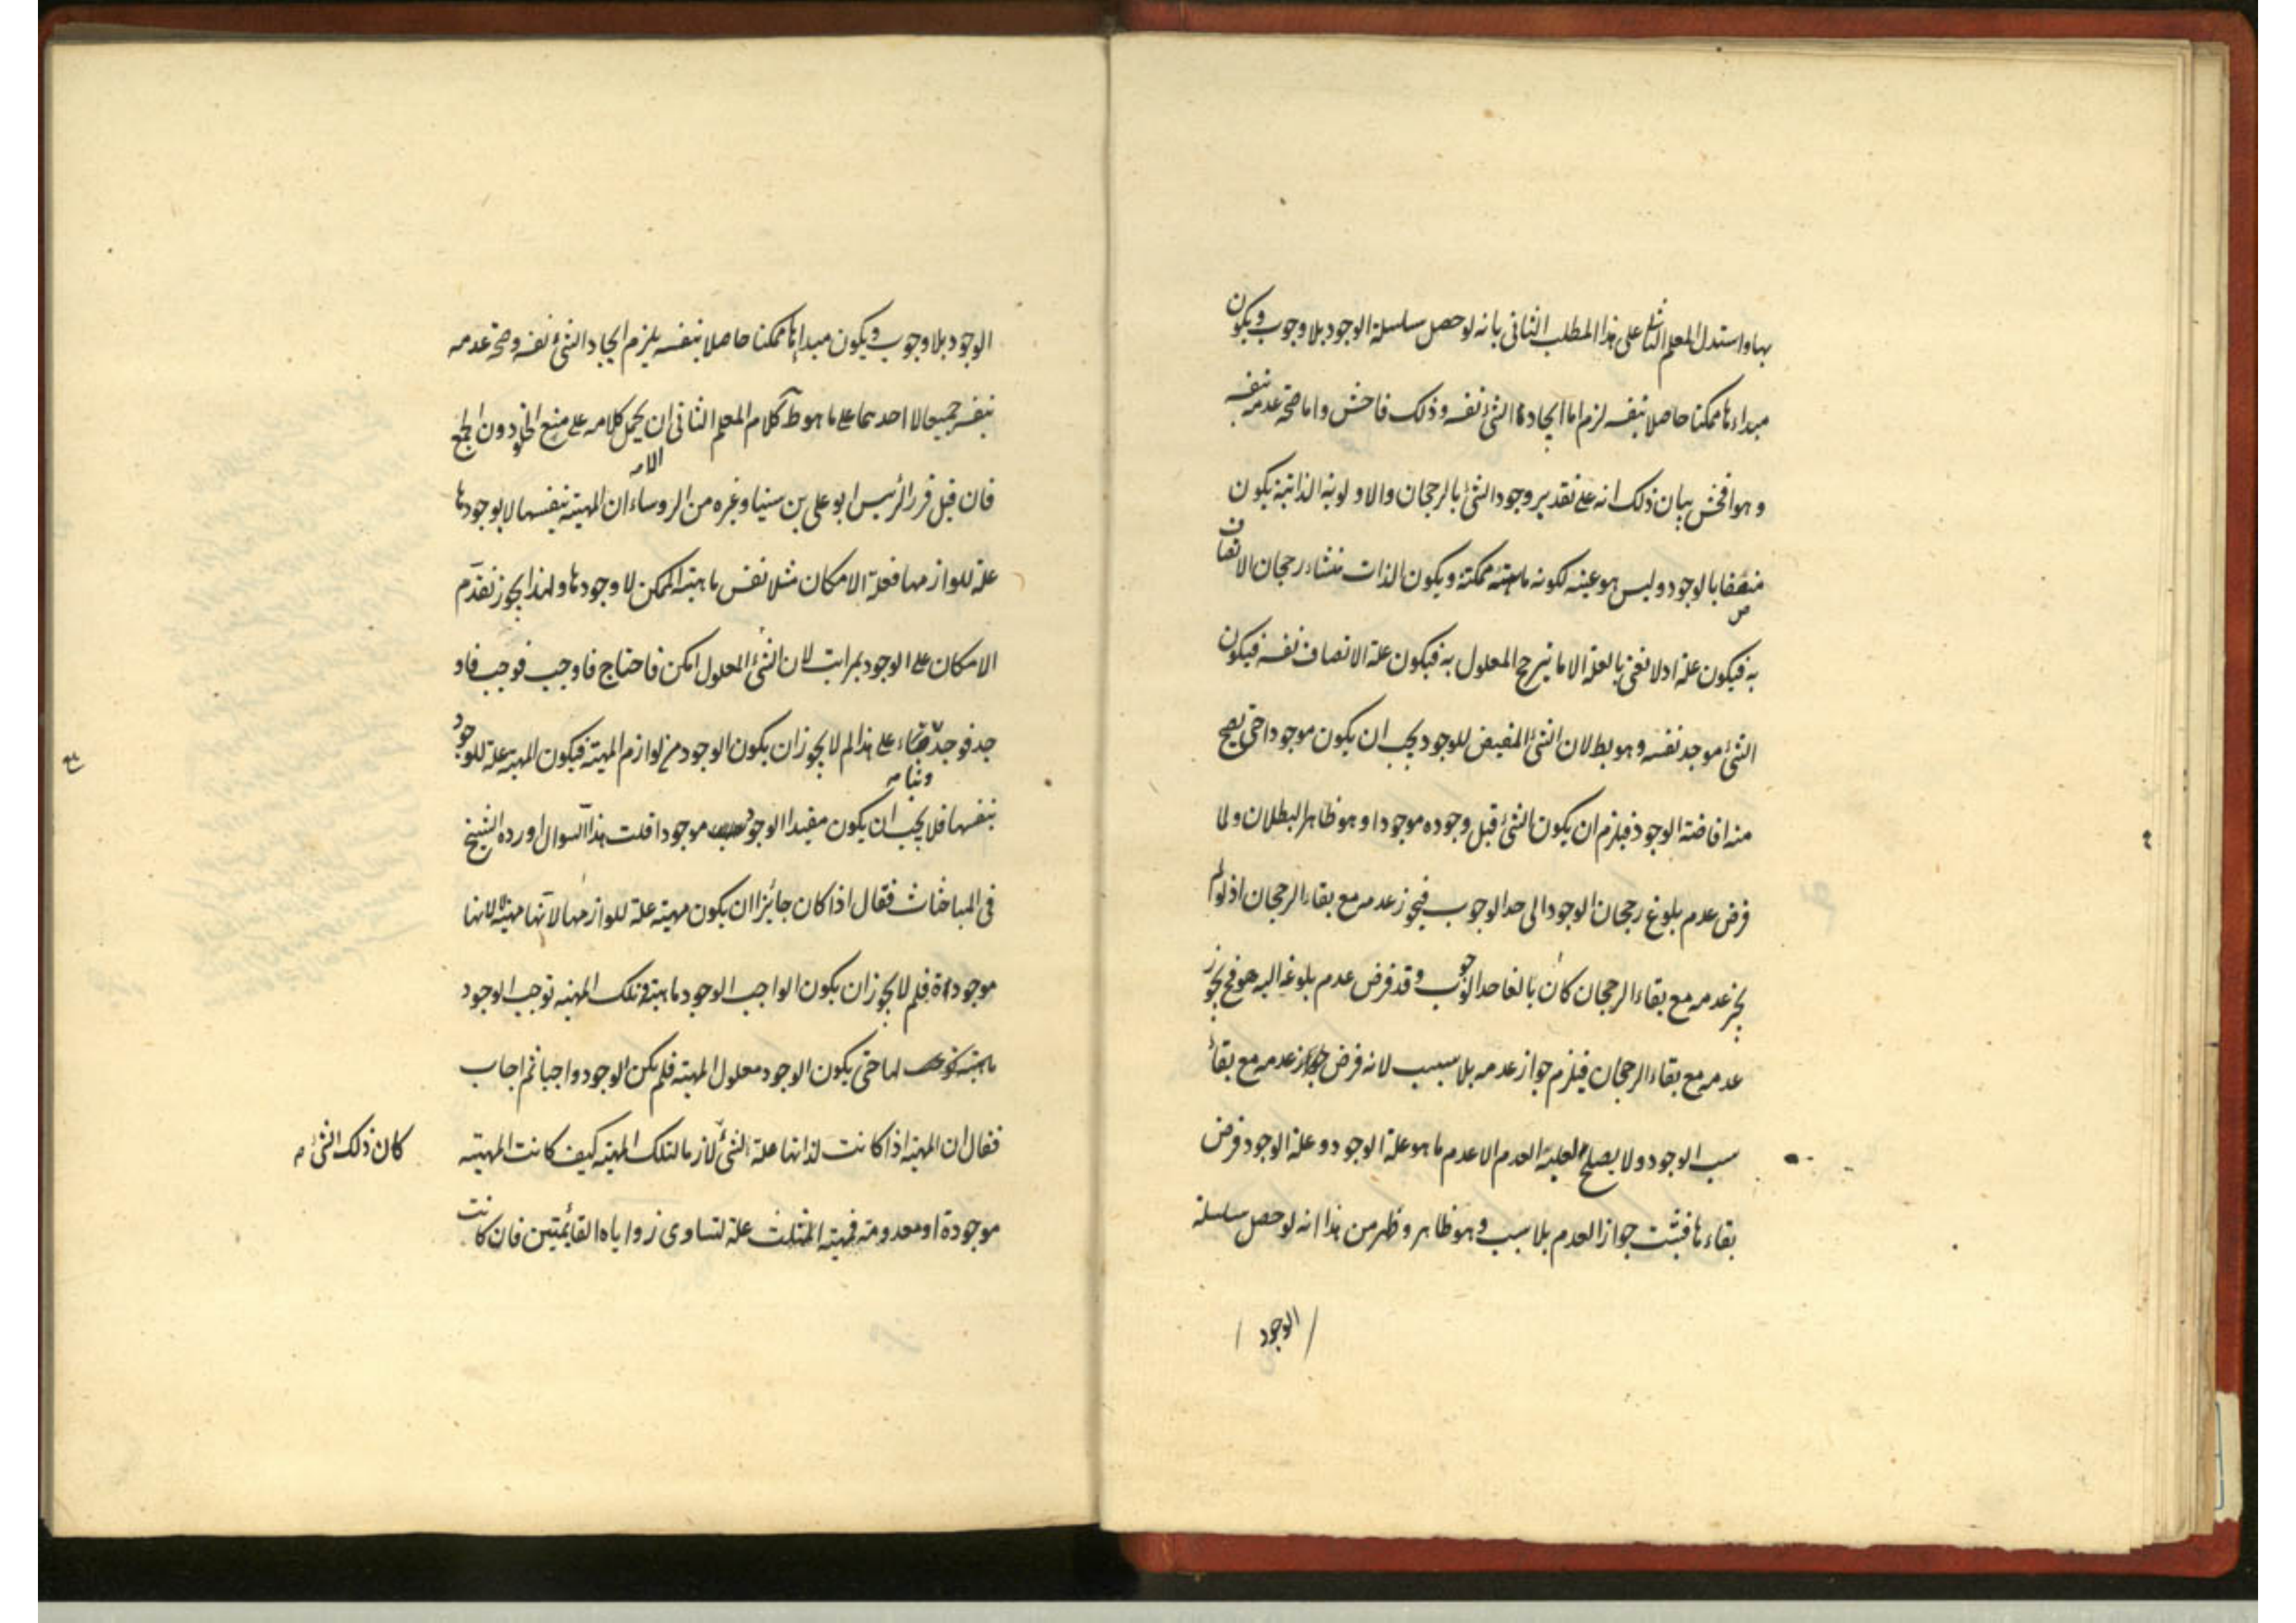 بها واستدل المعلم الثانى على هذا المطلب الثانى بانه لو حصل سلسلة الوجود بلا وجوب ويكون
مبداءها ممكنا حاصلا بنفسه لزم اما ايجاد الشئ نفسه وذلك فاحش واما صحة عدمه بنفسه
وهو افحش بيان ذلك انه على تقدير وجود الشئ بالرجحان والاولوية الذاتية يكون
متصفا بالوجود وليس هو عينه لكونه ماهية ممكنة ويكون الذات منشاء رجحان الاتصاف
به فيكون علة اذ لا نعنى بالعلة الا ما يترجح المعلول به فيكون علة الاتصاف نفسه فيكون
الشئ موجد نفسه وهو بط لان الشئ المفيض للوجود يجب ان يكون موجودا حتى يصح
منه افاضة الوجود فيلزم ان يكون الشئ قبل وجوده موجودا وهو ظاهر البطلان ولما
فرض عدم بلوغ رجحان الوجود الى حد الوجوب فيجوز عدمه مع بقاء الرجحان اذ لو لم
يجز عدمه مع بقاء الرجحان كان بالغا حد الوجوب وقد فرض عدم بلوغه اليه هف فح يجوز
عدمه مع بقاء الرجحان فيلزم جواز عدمه بلا سبب لانه فرض جواز عدمه مع بقاء
سبب الوجود ولا يصلح لعلية العدم الا عدم ما هو علة الوجود وعلة الوجود فرض
بقاءها فيثبت جواز العدم بلا سبب وهو ظاهر وظهر من هذا انه لو حصل سلسلة
الوجود
الوجود بلا وجوب ويكون مبداها ممكنا حاصلا بنفسه يلزم ايجاد الشئ نفسه وصحة عدمه
بنفسه جميعا لا احدهما على ما هو ظ كلام المعلم الثانى ان يحمل كلامه على منع الخلو دون الجمع
الا
فان قيل قرر الرئيس ابو على بن سينا وغيره من الروساء ان المهية بنفسها لا بوجودها
علة للوازمها فعلة الامكان مثلا نفس ماهية الممكن لا وجودها ولهذا يجوز تقدم
الامكان على الوجود بمراتب لان الشئ المعلول امكن فاحتاج فاوجب فوجب فاو
جد فوجد على هذا لم لا يجوز ان يكون الوجود من لوازم المهية فيكون المهية علة للوجود
وبناء
بنفسها فلا يجب ان يكون مفيد الوجود موجودا قلت هذا السوال اورده الشيخ
فى المباحثات فقال اذا كان جائزا ان يكون مهية علة للوازمها لانها مهية لا لانها
موجودة فلم لا يجوز ان يكون الواجب الوجود ماهية وتلك المهية توجب الوجود
لها حتى يكون الوجود معلول المهية فلم يكن الوجود واجبا ثم اجاب
فقال ان المهية اذا كانت لذاتها علة الشئ لازما لتلك المهية كيف كانت المهية
كان ذلك الشئ
موجودة او معدومة فمهية المثلث علة لتساوى زواياه القائمتين فان كانت